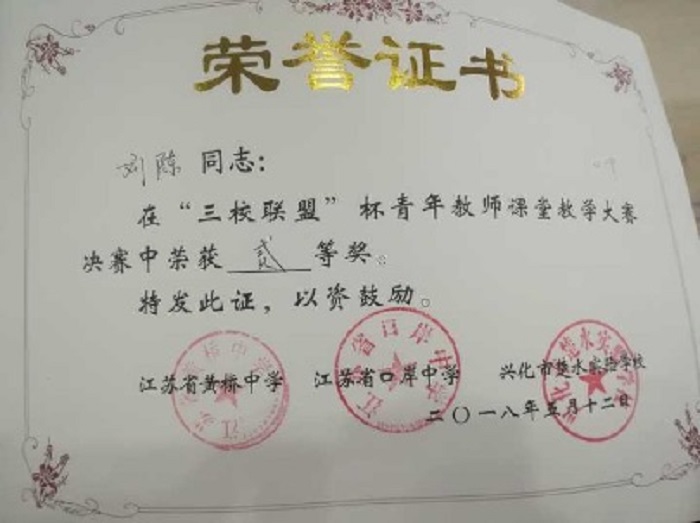 荣誉证书
刘陈 同志:
在“三校联盟”杯青年教师课堂教学大赛
决赛中荣获 贰 等奖。
特发此证,以资鼓励。
江苏省黄桥中学 江苏省口岸中学 兴化市楚水实验学校
二〇一八年五月十二日